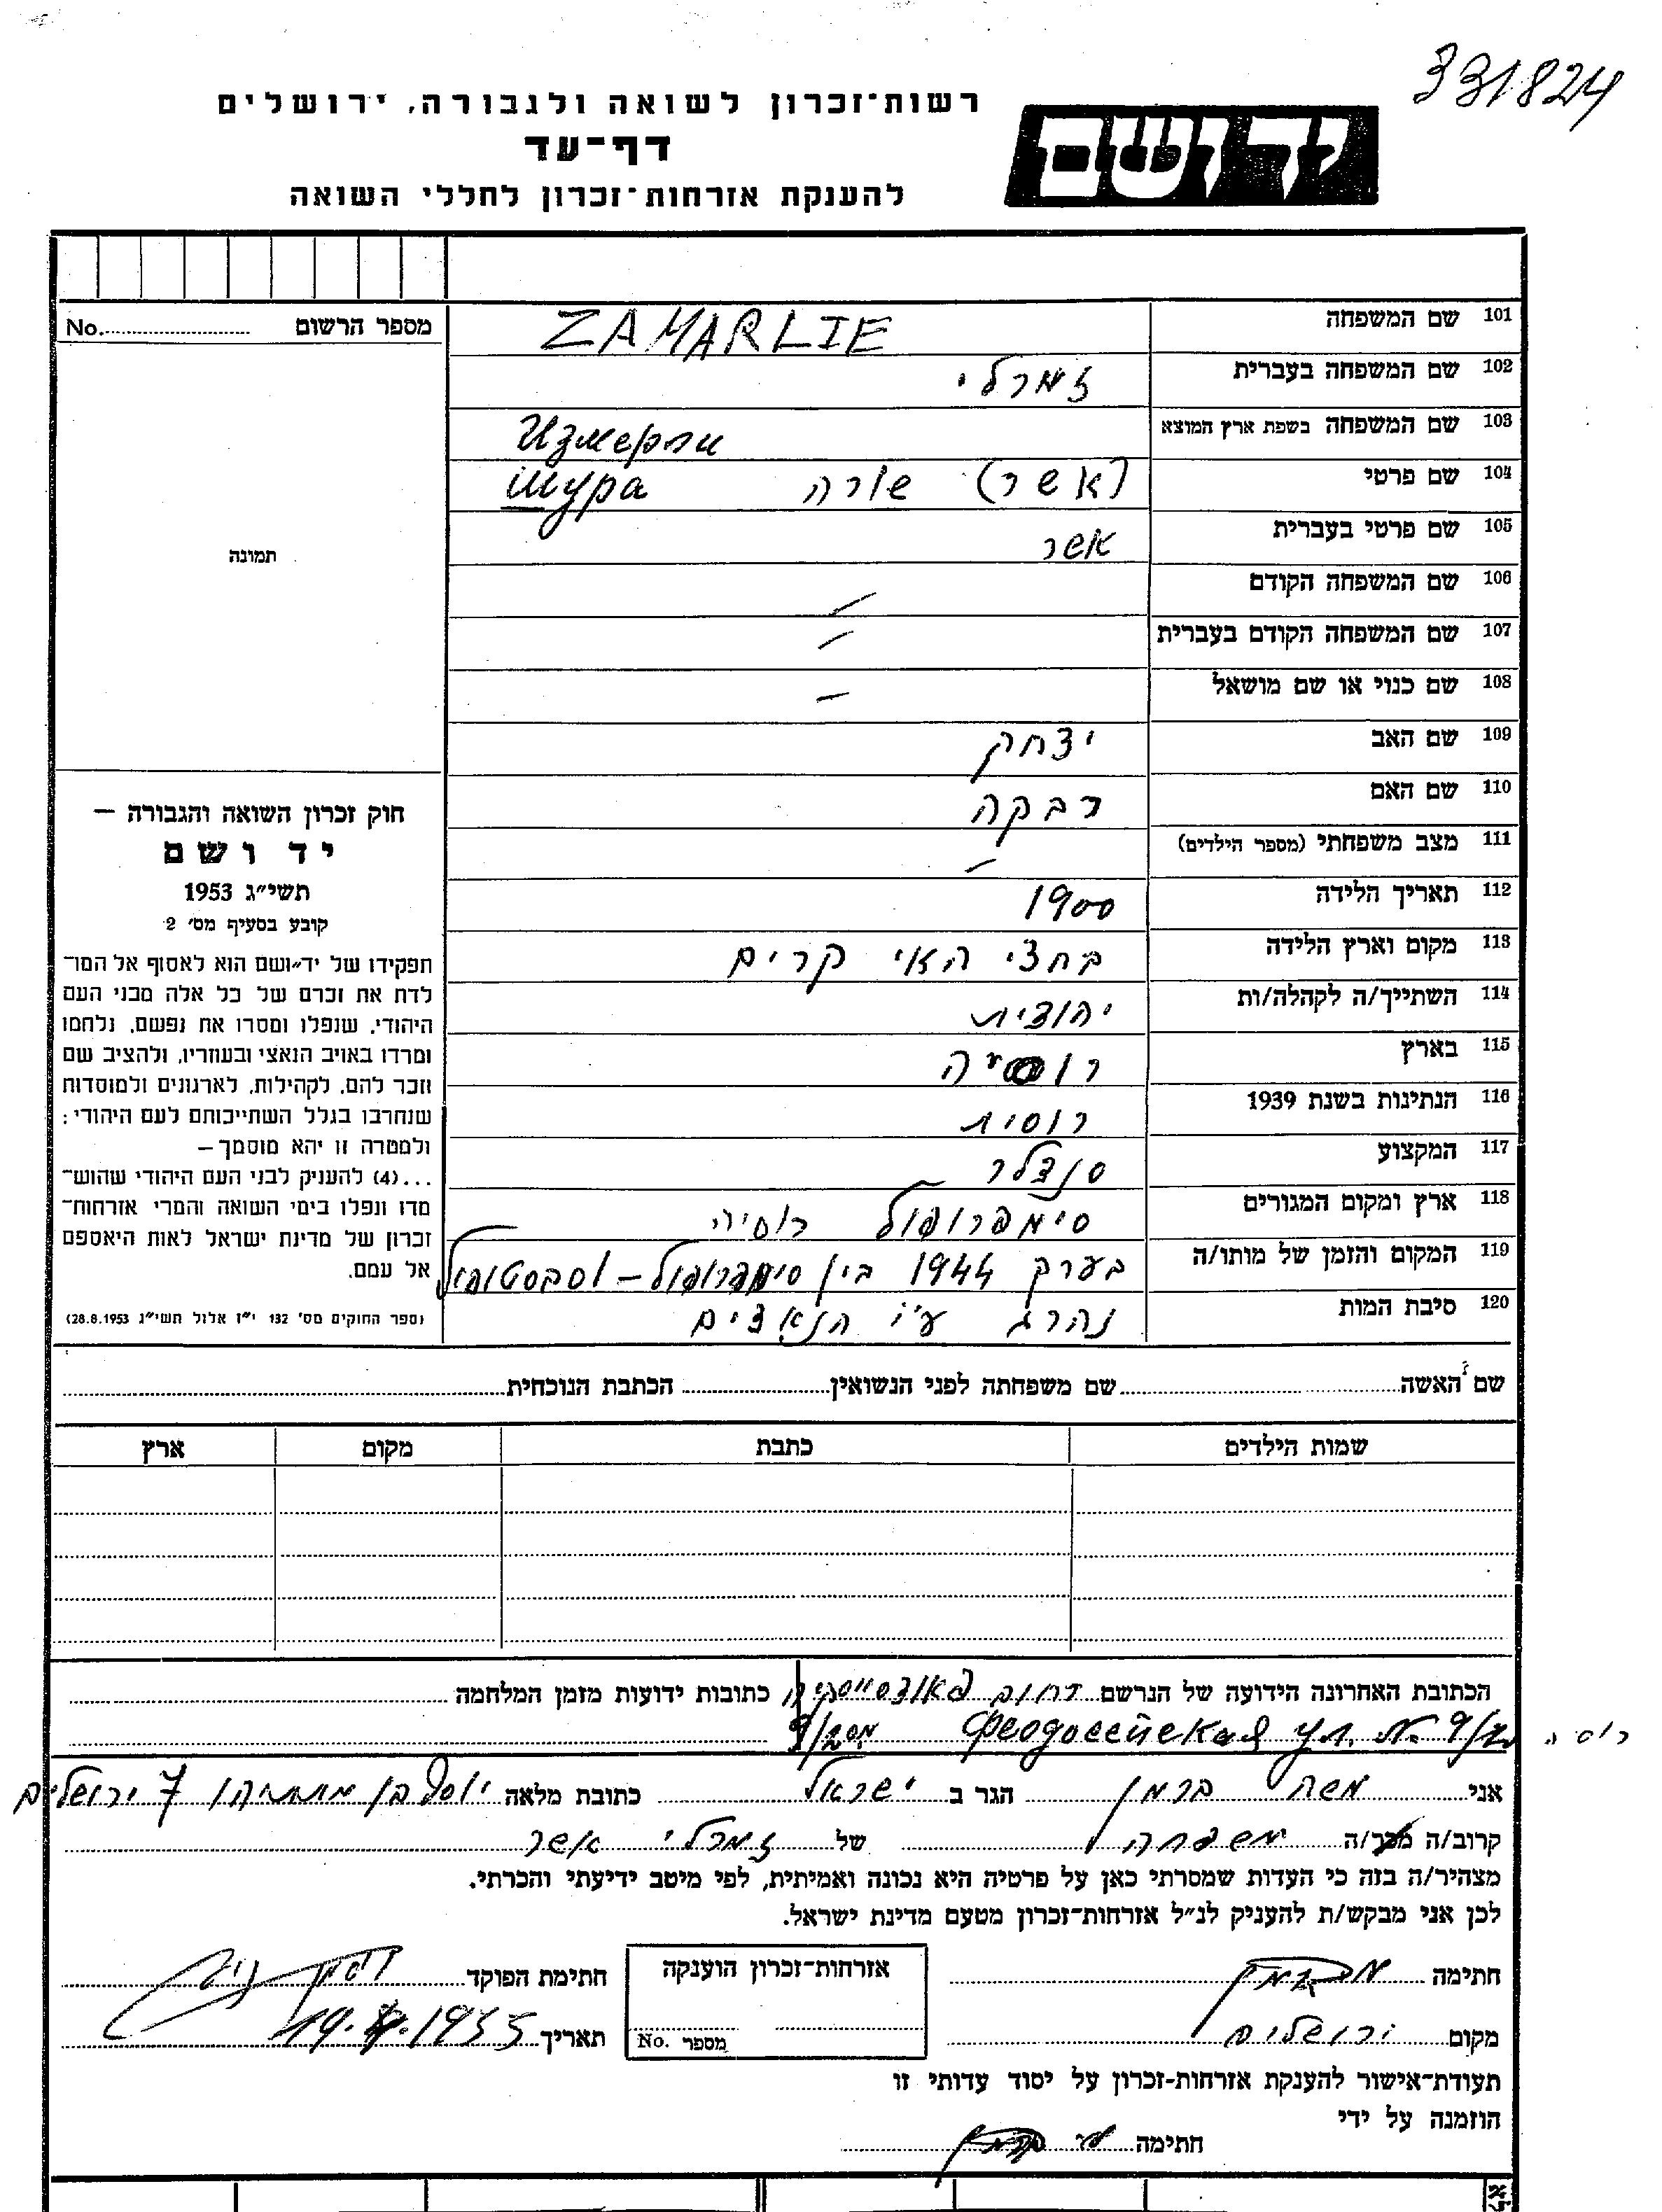 331824
רשות־זכרון לשואה ולגבורה, ירושלים
יד ושם
דף־עד
להענקת אזרחות־זכרון לחללי השואה
101 שם המשפחה ZAMARLIE
102 שם המשפחה בעברית זמרלי
103 שם המשפחה בשפת ארץ המוצא Измерли
104 שם פרטי (אשר) שורה Шура
105 שם פרטי בעברית אשר
106 שם המשפחה הקודם –
107 שם המשפחה הקודם בעברית –
108 שם כנוי או שם מושאל –
109 שם האב יצחק
110 שם האם רבקה
111 מצב משפחתי (מספר הילדים) –
112 תאריך הלידה 1900
113 מקום וארץ הלידה בחצי האי קרים
114 השתייך/ה לקהלה/ות יהודית
115 בארץ רוסיה
116 הנתינות בשנת 1939 רוסית
117 המקצוע סנדלר
118 ארץ ומקום המגורים סימפרופול רוסיה
119 המקום והזמן של מותו/ה בערך 1944 בין סימפרופול – וסבסטופול
120 סיבת המות נהרג ע"י הנאצים
מספר הרשום No.
תמונה
חוק זכרון השואה והגבורה –
יד ושם
תשי״ג 1953
קובע בסעיף מס׳ 2
תפקידו של יד־ושם הוא לאסוף אל המו־
לדת את זכרם של כל אלה מבני העם
היהודי, שנפלו ומסרו את נפשם, נלחמו
ומרדו באויב הנאצי ובעוזריו, ולהציב שם
וזכר להם, לקהילות, לארגונים ולמוסדות
שנחרבו בגלל השתייכותם לעם היהודי;
ולמטרה זו יהא מוסמך –
...(4) להעניק לבני העם היהודי שהוש־
מדו ונפלו בימי השואה והמרי אזרחות־
זכרון של מדינת ישראל לאות היאספם
אל עמם.
(ספר החוקים מס׳ 132 י״ז אלול תשי״ג 28.8.1953)
שם האשה שם משפחתה לפני הנשואין הכתבת הנוכחית
שמות הילדים כתבת מקום ארץ
הכתובת האחרונה הידועה של הנרשם רחוב כתובות ידועות מזמן המלחמה
רוסיה Феодосейская ул. №. 9/2 מס 9/2
אני משה ברמן הגר ב ישראל כתובת מלאה יוסף בן מתתיהו 7 ירושלים
קרוב/ה מכר/ה משפחה של זמרלי אשר
מצהיר/ה בזה כי העדות שמסרתי כאן על פרטיה היא נכונה ואמיתית, לפי מיטב ידיעתי והכרתי.
לכן אני מבקש/ת להעניק לנ״ל אזרחות־זכרון מטעם מדינת ישראל.
חתימה אזרחות־זכרון הוענקה חתימת הפוקד
מקום ירושלים מספר No. תאריך 1955
תעודת־אישור להענקת אזרחות־זכרון על יסוד עדותי זו
הוזמנה על ידי
חתימה